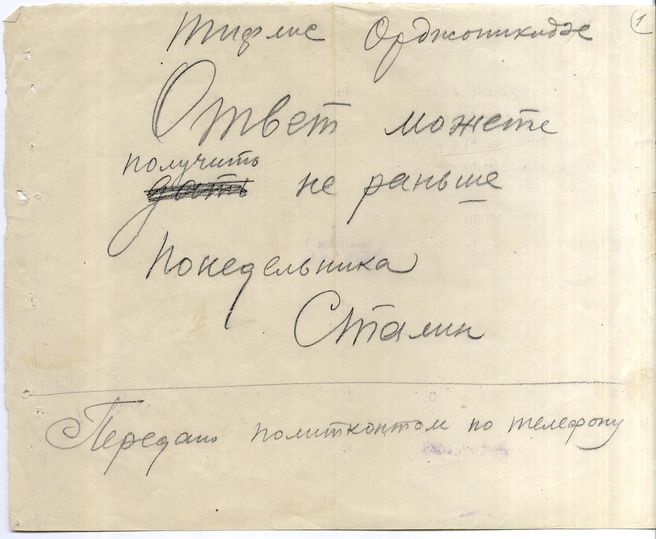 1
Тифлис Орджоникидзе
Ответ можете
получить
дать не раньше
Понедельника
Сталин
Передано по телефону